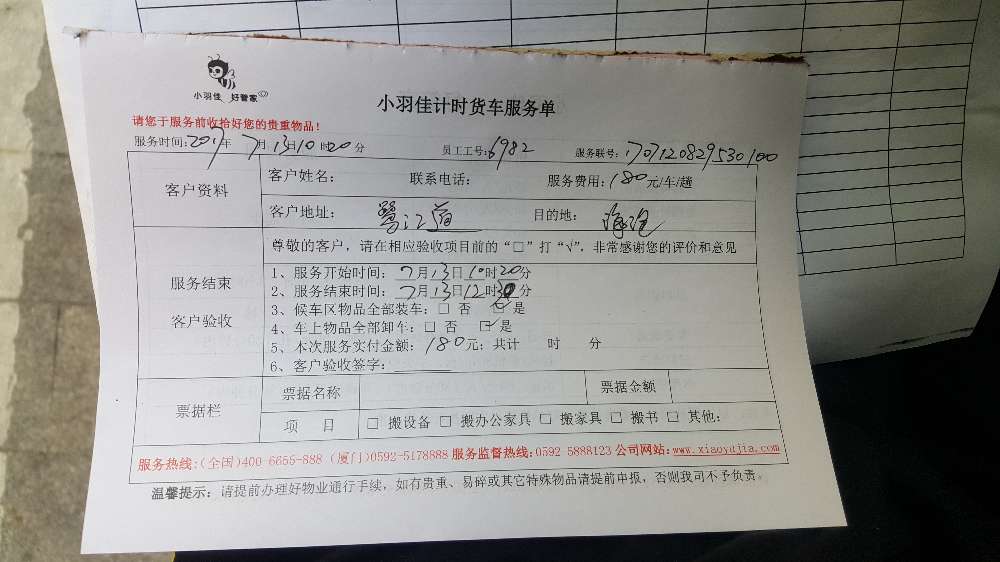 小羽佳 好管家
小羽佳计时货车服务单
请您于服务前收拾好您的贵重物品！
服务时间：2017年 7月13日10时20分 员工工号：6982 服务联号：
客户资料
客户姓名： 联系电话： 服务费用：180元/车/趟
客户地址：鹭江道 目的地：海沧
尊敬的客户，请在相应验收项目前的“□”打“√”，非常感谢您的评价和意见
服务结束
客户验收
1、服务开始时间：7月13日10时20分
2、服务结束时间：7月13日12时30分
3、候车区物品全部装车：□ 否 ☑ 是
4、车上物品全部卸车：□ 否 ☑ 是
5、本次服务实付金额：180元；共计 时 分
6、客户验收签字：
票据栏
票据名称 票据金额
项 目 □ 搬设备 □ 搬办公家具 □ 搬家具 □ 搬书 □ 其他：
服务热线:(全国)400-6655-888 (厦门)0592-5178888 服务监督热线:0592-5888123 公司网站:www.xiaoyujia.com
温馨提示：请提前办理好物业通行手续，如有贵重、易碎或其它特殊物品请提前申报，否则我司不予负责。